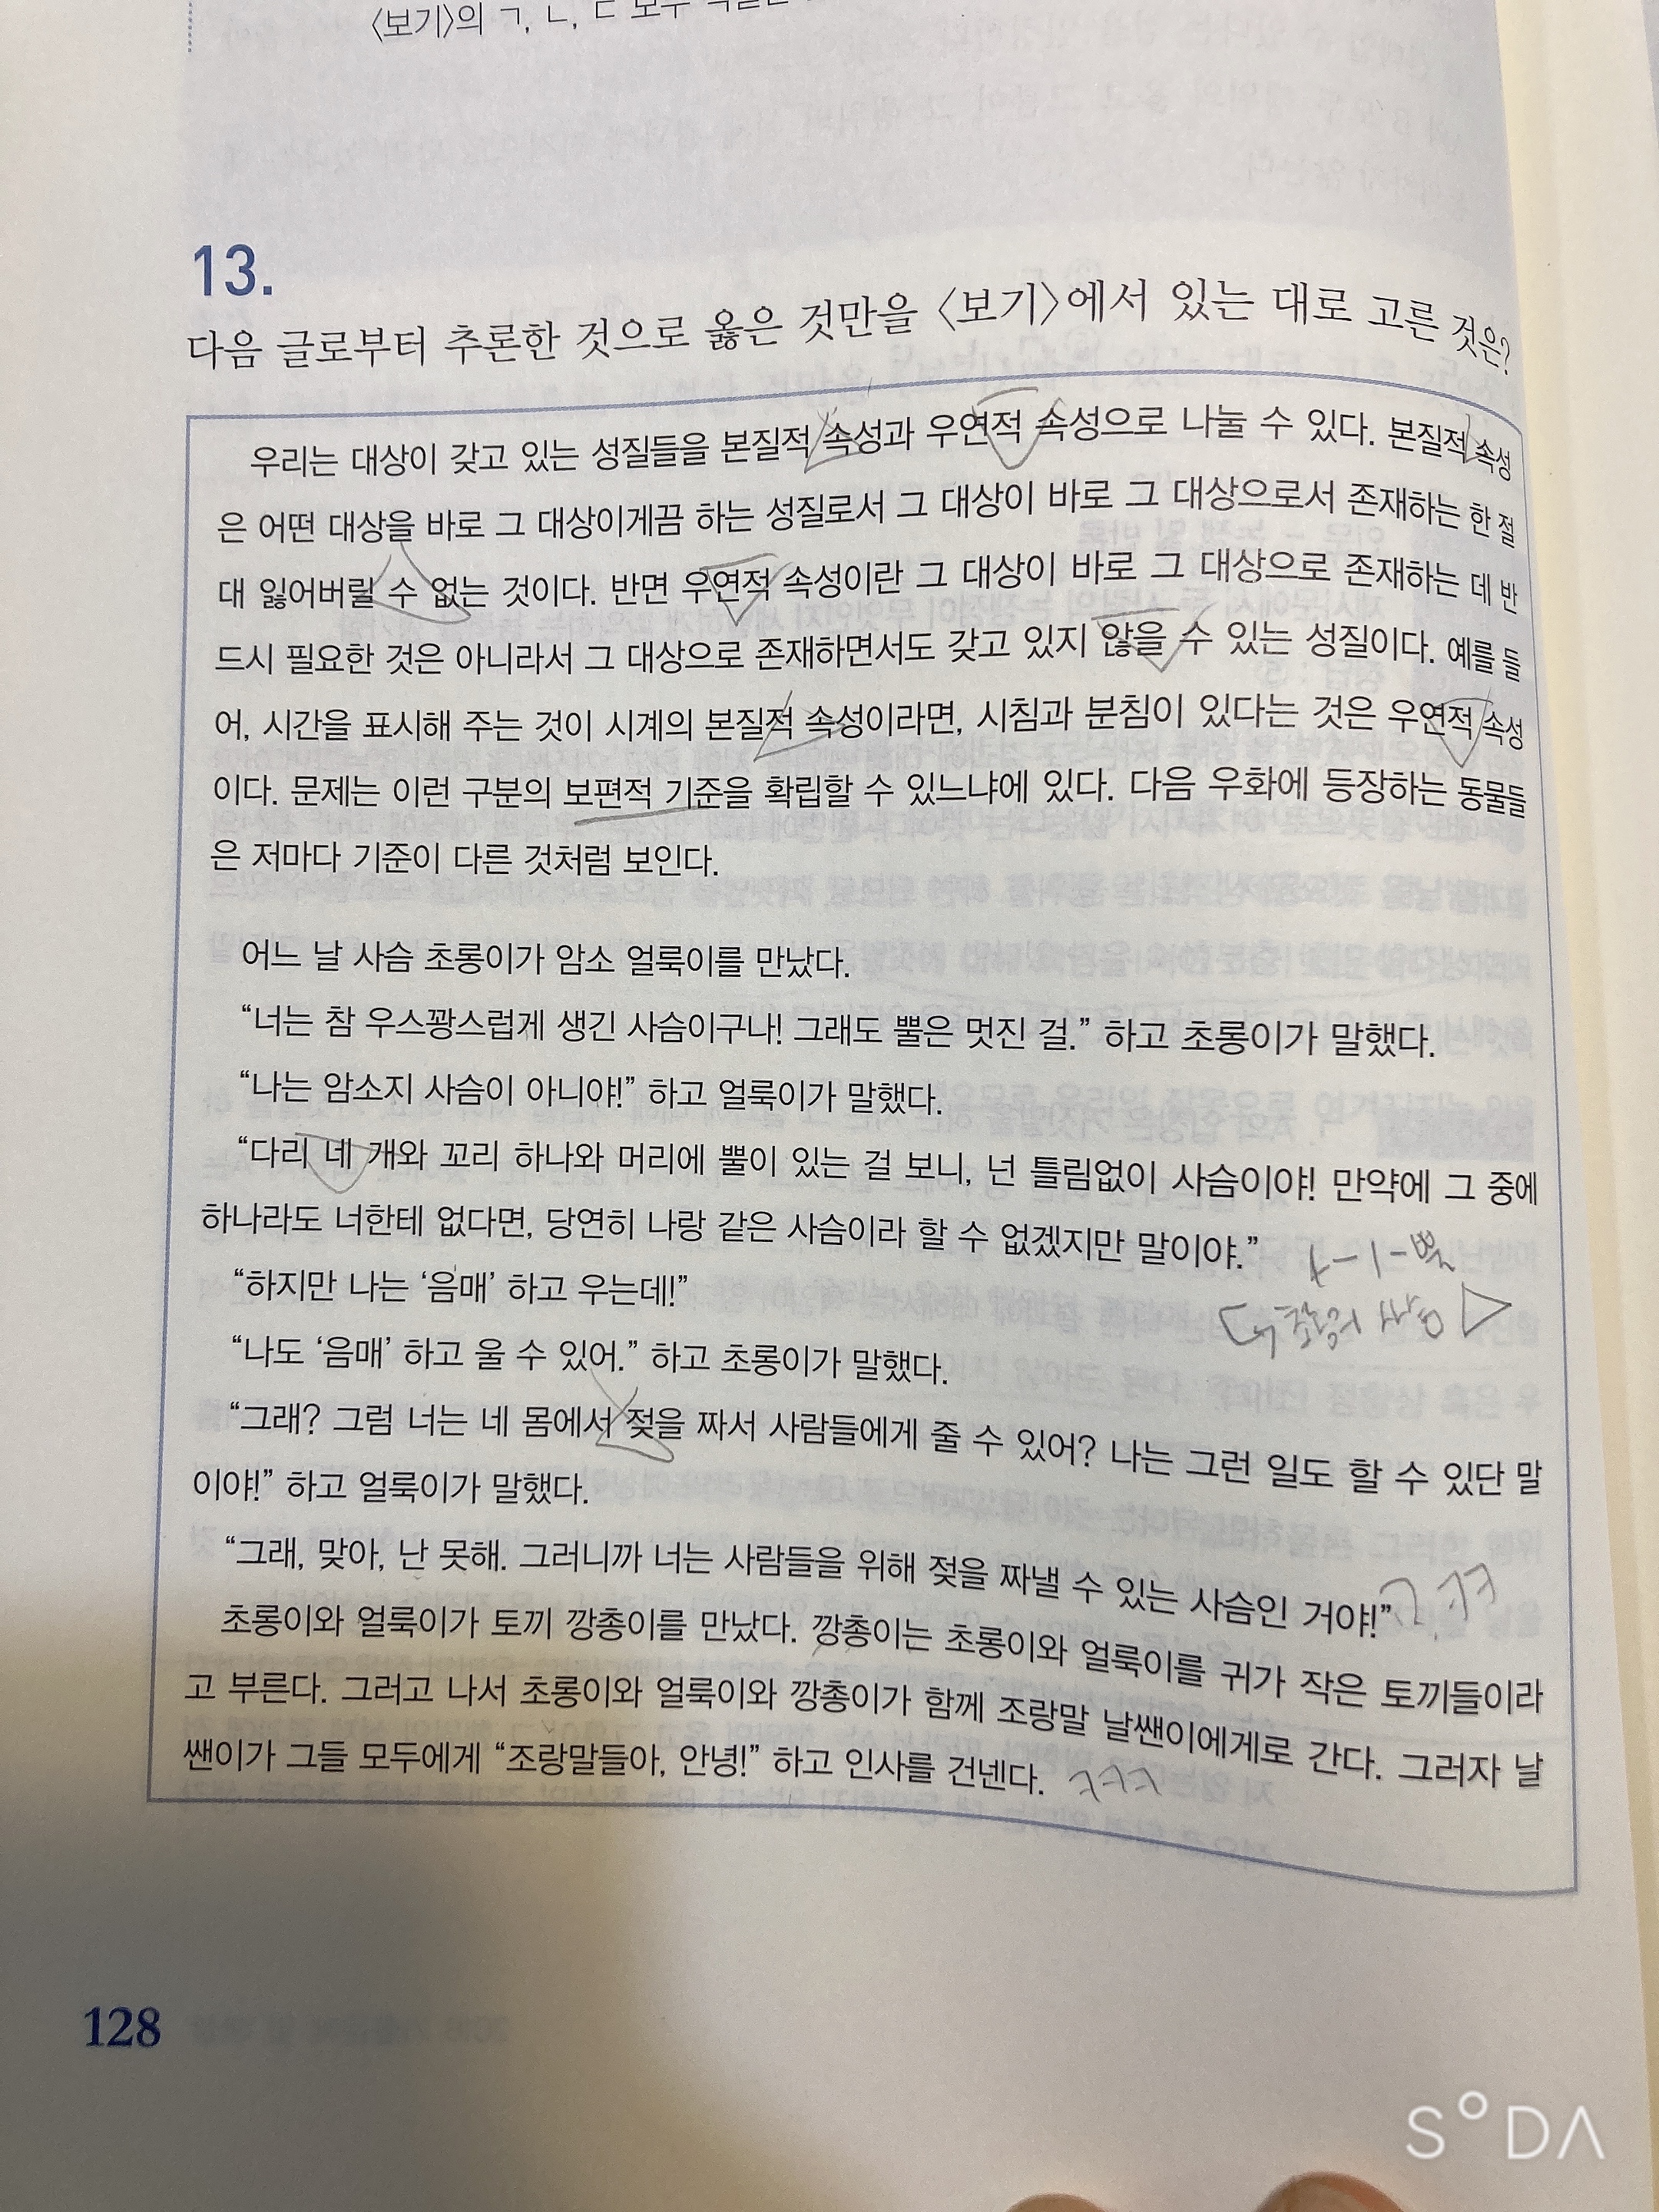 〈보기〉의 ㄱ, ㄴ, ㄷ 모두
13.
다음 글로부터 추론한 것으로 옳은 것만을 〈보기〉에서 있는 대로 고른 것은?
우리는 대상이 갖고 있는 성질들을 본질적 속성과 우연적 속성으로 나눌 수 있다. 본질적 속성
은 어떤 대상을 바로 그 대상이게끔 하는 성질로서 그 대상이 바로 그 대상으로서 존재하는 한 절
대 잃어버릴 수 없는 것이다. 반면 우연적 속성이란 그 대상이 바로 그 대상으로 존재하는 데 반
드시 필요한 것은 아니라서 그 대상으로 존재하면서도 갖고 있지 않을 수 있는 성질이다. 예를 들
어, 시간을 표시해 주는 것이 시계의 본질적 속성이라면, 시침과 분침이 있다는 것은 우연적 속성
이다. 문제는 이런 구분의 보편적 기준을 확립할 수 있느냐에 있다. 다음 우화에 등장하는 동물들
은 저마다 기준이 다른 것처럼 보인다.
어느 날 사슴 초롱이가 암소 얼룩이를 만났다.
“너는 참 우스꽝스럽게 생긴 사슴이구나! 그래도 뿔은 멋진 걸.” 하고 초롱이가 말했다.
“나는 암소지 사슴이 아니야!” 하고 얼룩이가 말했다.
“다리 네 개와 꼬리 하나와 머리에 뿔이 있는 걸 보니, 넌 틀림없이 사슴이야! 만약에 그 중에
하나라도 너한테 없다면, 당연히 나랑 같은 사슴이라 할 수 없겠지만 말이야.”
4-1-뿔
“하지만 나는 ‘음매’ 하고 우는데!”
“나도 ‘음매’ 하고 울 수 있어.” 하고 초롱이가 말했다.
“그래? 그럼 너는 네 몸에서 젖을 짜서 사람들에게 줄 수 있어? 나는 그런 일도 할 수 있단 말
이야!” 하고 얼룩이가 말했다.
“그래, 맞아, 난 못해. 그러니까 너는 사람들을 위해 젖을 짜낼 수 있는 사슴인 거야!”
초롱이와 얼룩이가 토끼 깡총이를 만났다. 깡총이는 초롱이와 얼룩이를 귀가 작은 토끼들이라
고 부른다. 그러고 나서 초롱이와 얼룩이와 깡총이가 함께 조랑말 날쌘이에게로 간다. 그러자 날
쌘이가 그들 모두에게 “조랑말들아, 안녕!” 하고 인사를 건넨다. ㅋㅋㅋ
128
SODA